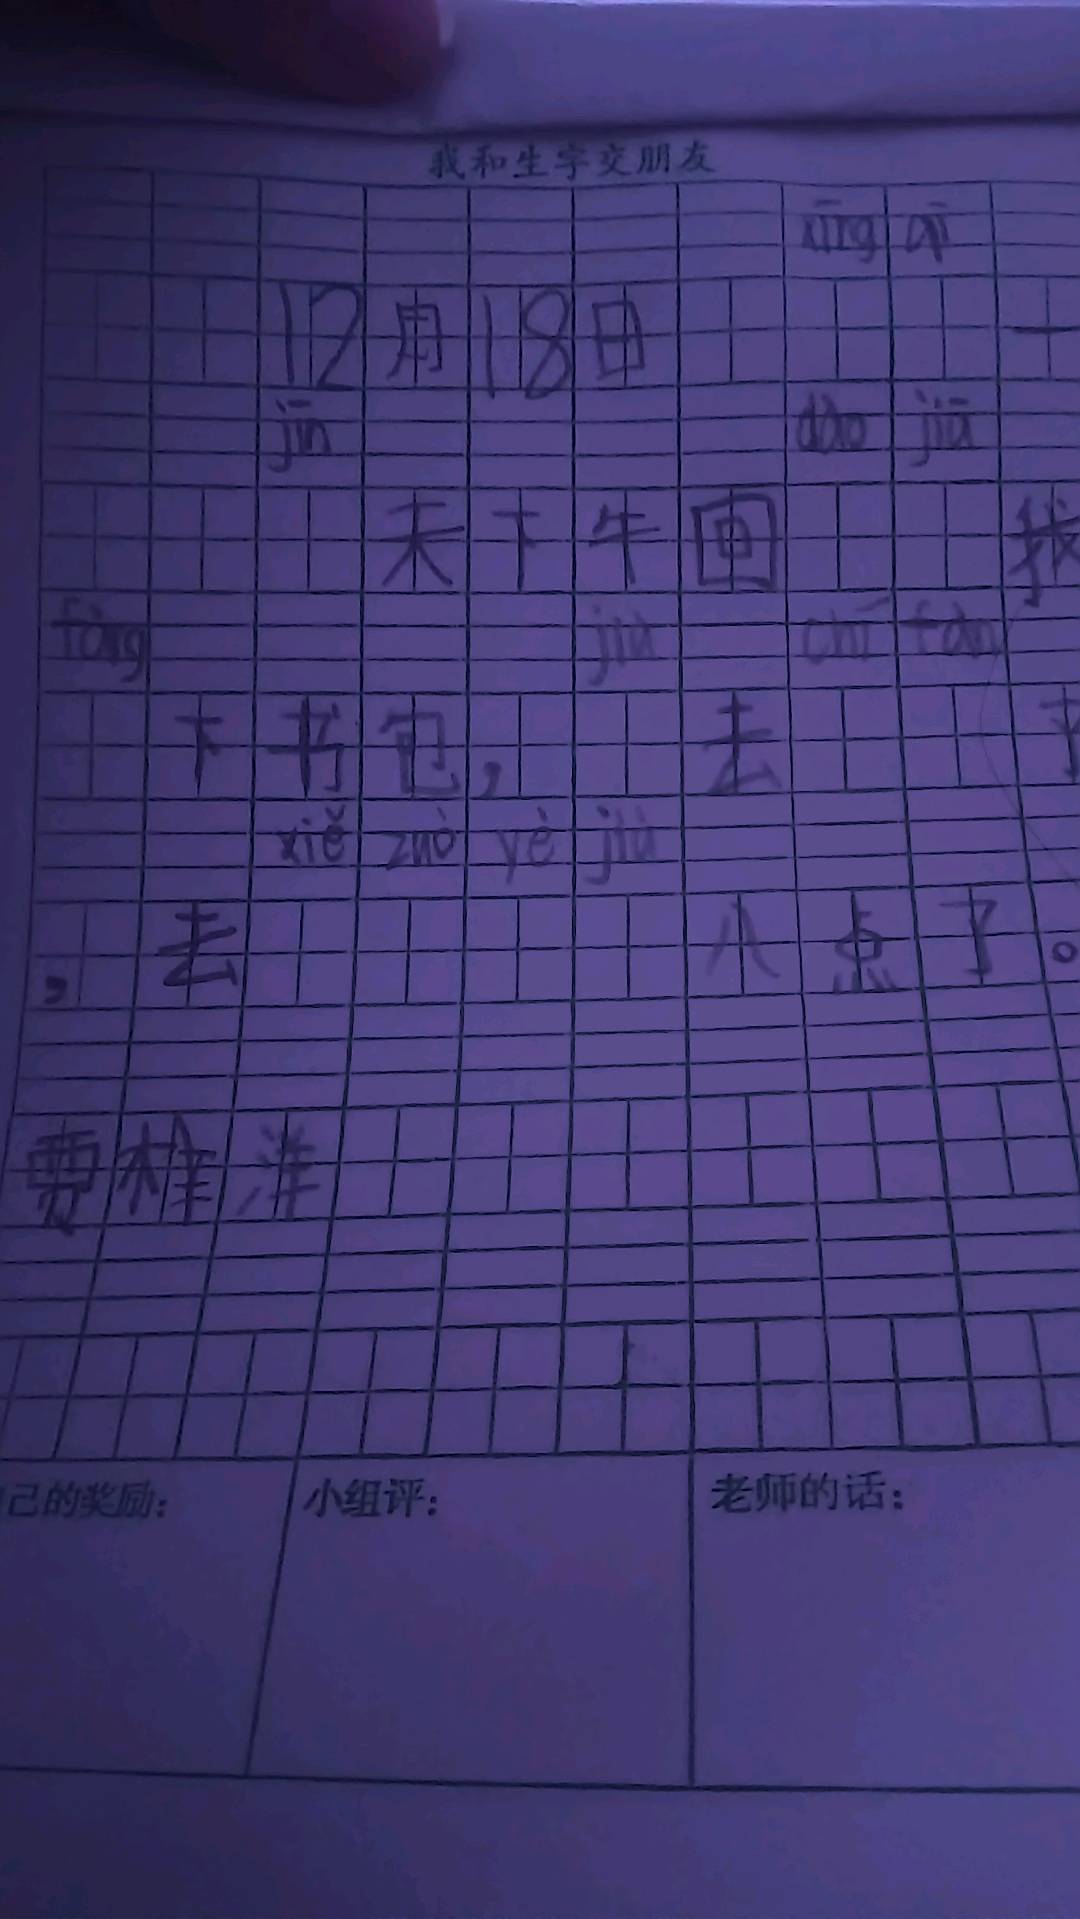 我和生字交朋友
xīng qī
12月18日 一
jīn dào jiā
天下午回 我
fàng jiù chī fàn
下书包, 去 了
xiě zuò yè jiù
,去 八点了。
贾梓洋
己的奖励: 小组评: 老师的话: